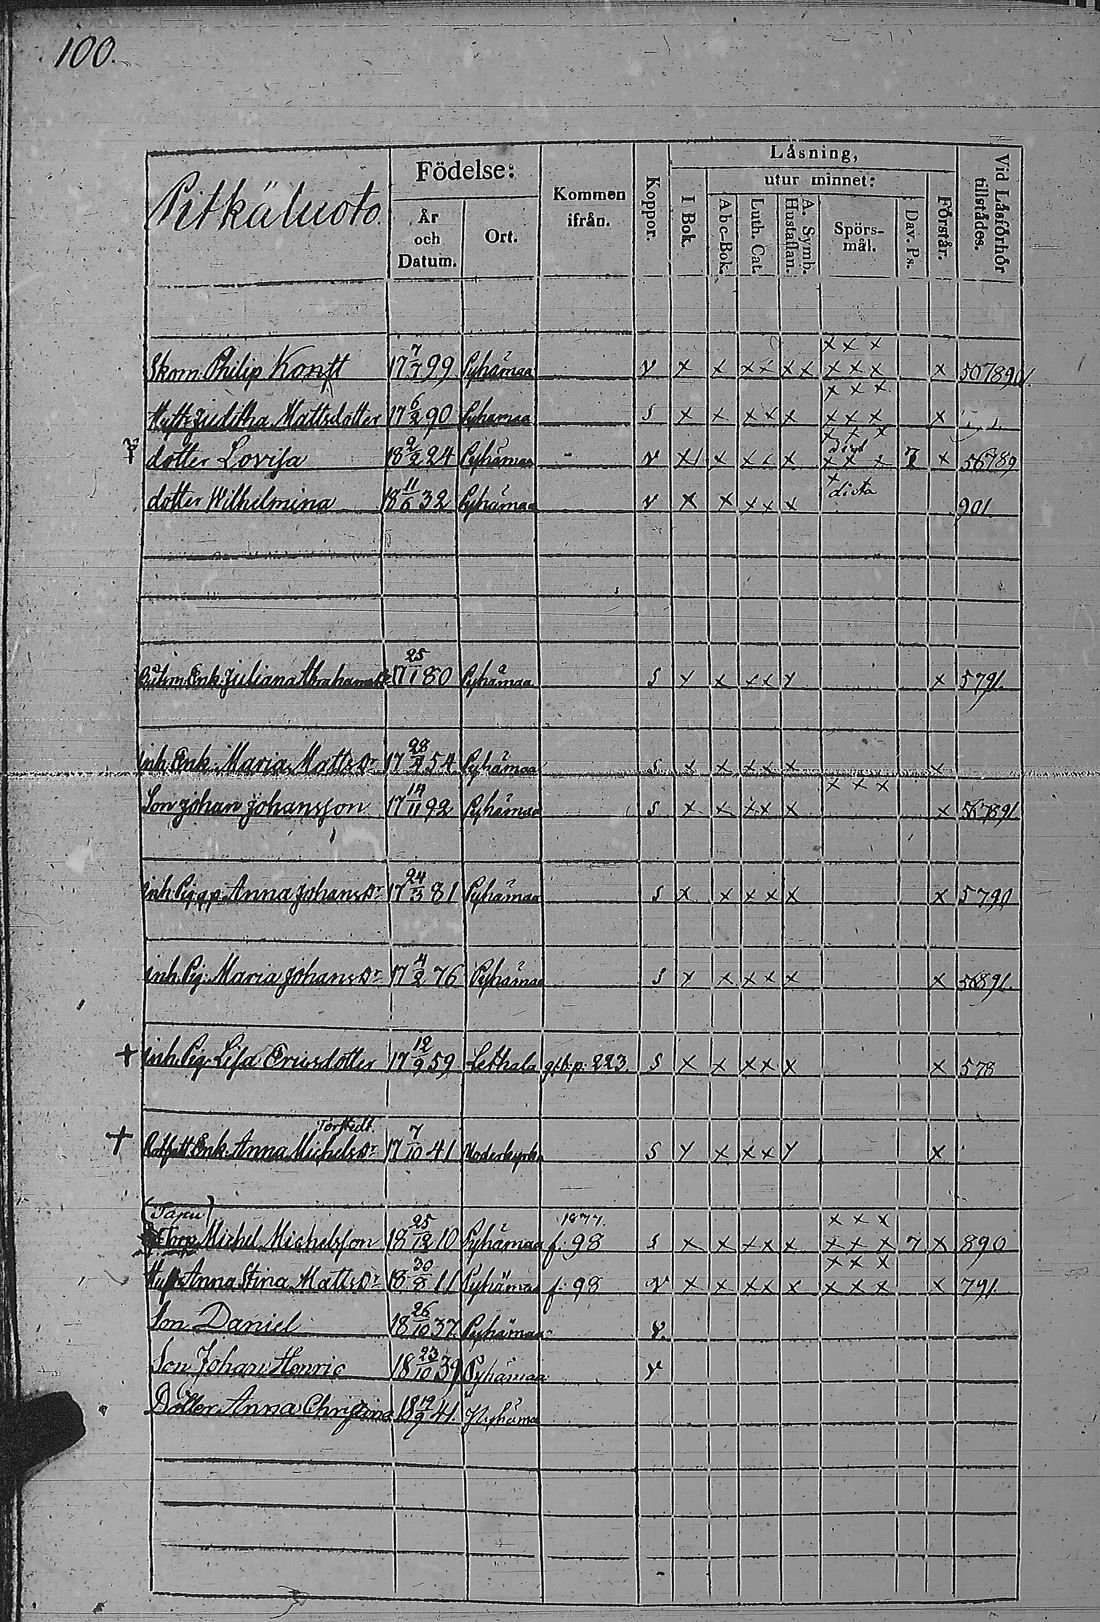 100.
Pitkäluoto.
Födelse:
År och Datum.
Ort.
Kommen ifrån.
Koppor.
Läsning,
I Bok.
utur minnet:
Abc-Bok.
Luth. Cat.
A. Symb. Hustaflan.
Spörsmål.
Dav. Ps.
Förstår.
Vid Läsförhör tillstädes.
x x x
Skom Philip Kontt 17 7/7 99 Pyhämaa v x x x x x x x x x x
x x x
Hust: Juditha Mattsdotter 17 6/2 90 Pyhämaa s x x x x x x x x x
x x x
dotter Lovisa 18 9/2 24 Pyhämaa v x x x x x x x x 7 x 56789
dotter Wilhelmina 18 11/6 32 Pyhämaa v x x x x x dicta 901.
Enk. Juliana Abrahamsdr 17 25/1 80 Pyhämaa s x x x x x x 5791.
Inh. Enk. Maria Mattsdr 17 28/4 54 Pyhämaa s x x x x x x
x x x
Son Johan Johansson 17 14/11 92 Pyhämaa s x x x x x x 567891
Inh. Pig. Anna Johansdr 17 24/3 81 Pyhämaa s x x x x x x 5790
Inh. Pig. Maria Johansdr 17 4/2 76 Pyhämaa s x x x x x x 56891.
+ Inh. Pig. Lisa Ericsdotter 17 12/9 59 Lethala p. 223. s x x x x x x 578
+ Enk. Anna Michelsdr 17 7/10 41 s x x x x x x
(Tapu) 1877. x x x
Torp Michel Michelsson 18 25/12 10 Pyhämaa f. 98 s x x x x x x x x 7 x 890
x x x
Hust Anna Stina Mattsdr 18 30/8 11 Pyhämaa f. 98 v x x x x x x x x x 791.
Son Daniel 18 26/10 37. Pyhämaa v.
Son Johan Henric 18 23/10 39 Pyhämaa v
Dotter Anna Christina 18 19/9 41. Pyhämaa